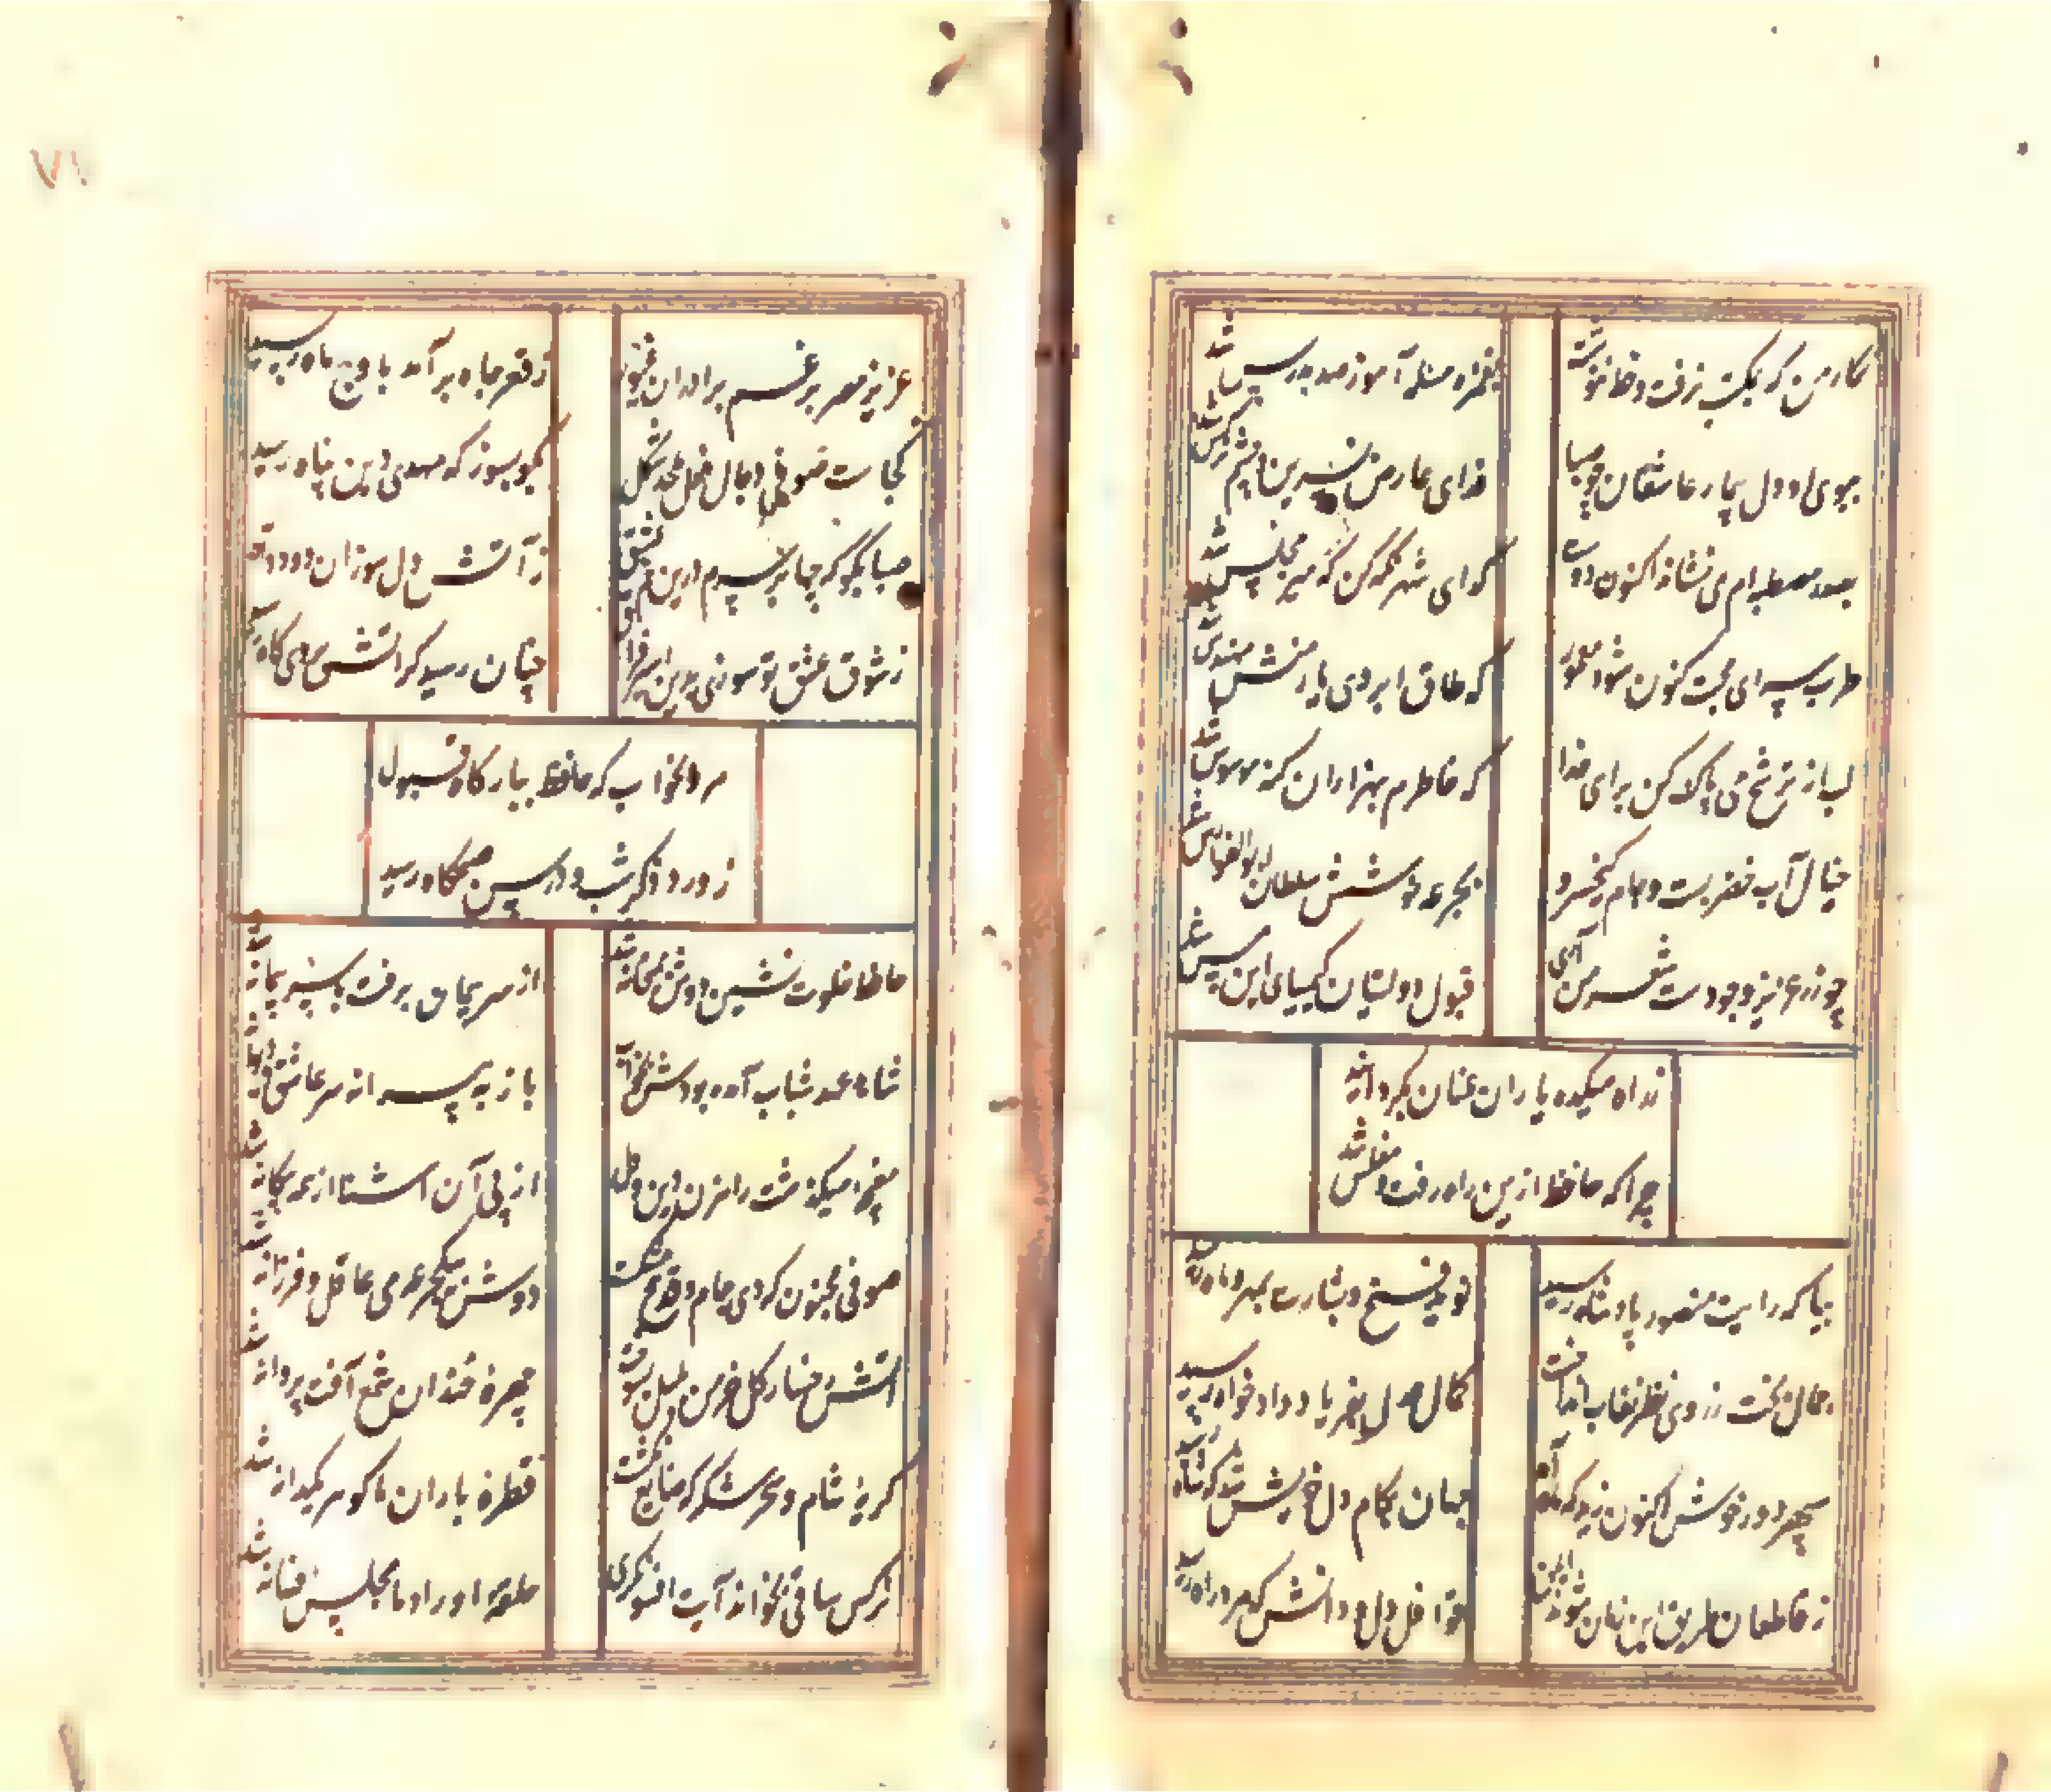 نگار من که بمکتب نرفت و خط ننوشت
بغمزه مسئله آموز صد مدرس شد
ببوی او دل بیمار عاشقان چو صبا
فدای عارض نسرین و چشم نرگس شد
بصدر مصطبه ام می نشاند اکنون دوست
گدای شهر نگه کن که میر مجلس شد
طرب سرای محبت کنون شود معمور
که طاق ابروی یار منش مهندس شد
لب از ترشح می پاک کن برای خدا
که خاطرم بهزاران گنه موسوس شد
خیال آب خضر بست و جام کیخسرو
بجرعه نوشی سلطان ابوالفوارس شد
چو زر عزیز وجودست شعر من آری
قبول دولتیان کیمیای این مس شد
ز راه میکده یاران عنان بگردانید
چرا که حافظ ازین راه رفت و مفلس شد
بیا که رایت منصور پادشاه رسید
نوید فتح و بشارت بمهر و ماه رسید
جمال بخت ز روی ظفر نقاب انداخت
کمال عدل بفریاد دادخواه رسید
سپهر دور خوش اکنون زند که ماه آمد
جهان بکام دل خویش شد که شاه رسید
ز قاطعان طریق این زمان شوند ایمن
قوافل دل و دانش که مرد راه رسید
۷۱
عزیز مصر برغم برادران غیور
ز قعر چاه برآمد باوج ماه رسید
کجاست صوفی دجال فعل ملحد شکل
بگو بسوز که مهدی دین پناه رسید
صبا بگو که چها بر سرم درین غم عشق
ز آتش دل سوزان و دود آه
ز شوق عشق تو سوزی بدین اسیر فراق
چنان رسید کز آتش بروی کاه رسید
مرو بخواب که حافظ ببارگاه قبول
ز ورد ذکر شب و درس صبحگاه رسید
حافظ خلوت نشین دوش بمیخانه شد
از سر پیمان برفت با سر پیمانه شد
شاهد عهد شباب آمده بودش بخواب
باز به پیرانه سر عاشق و دیوانه شد
مغبچه میگذشت راهزن دین و دل
از پی آن آشنا از همه بیگانه شد
صوفی مجنون که دی جام و قدح می شکست
دوش بیک جرعه می عاقل و فرزانه شد
آتش رخسار گل خرمن بلبل بسوخت
چهره خندان شمع آفت پروانه شد
گریه شام و سحر شکر که ضایع نگشت
قطره باران ما گوهر یکدانه شد
نرگس ساقی بخواند آیت افسونگری
حلقه اوراد ما مجلس افسانه شد